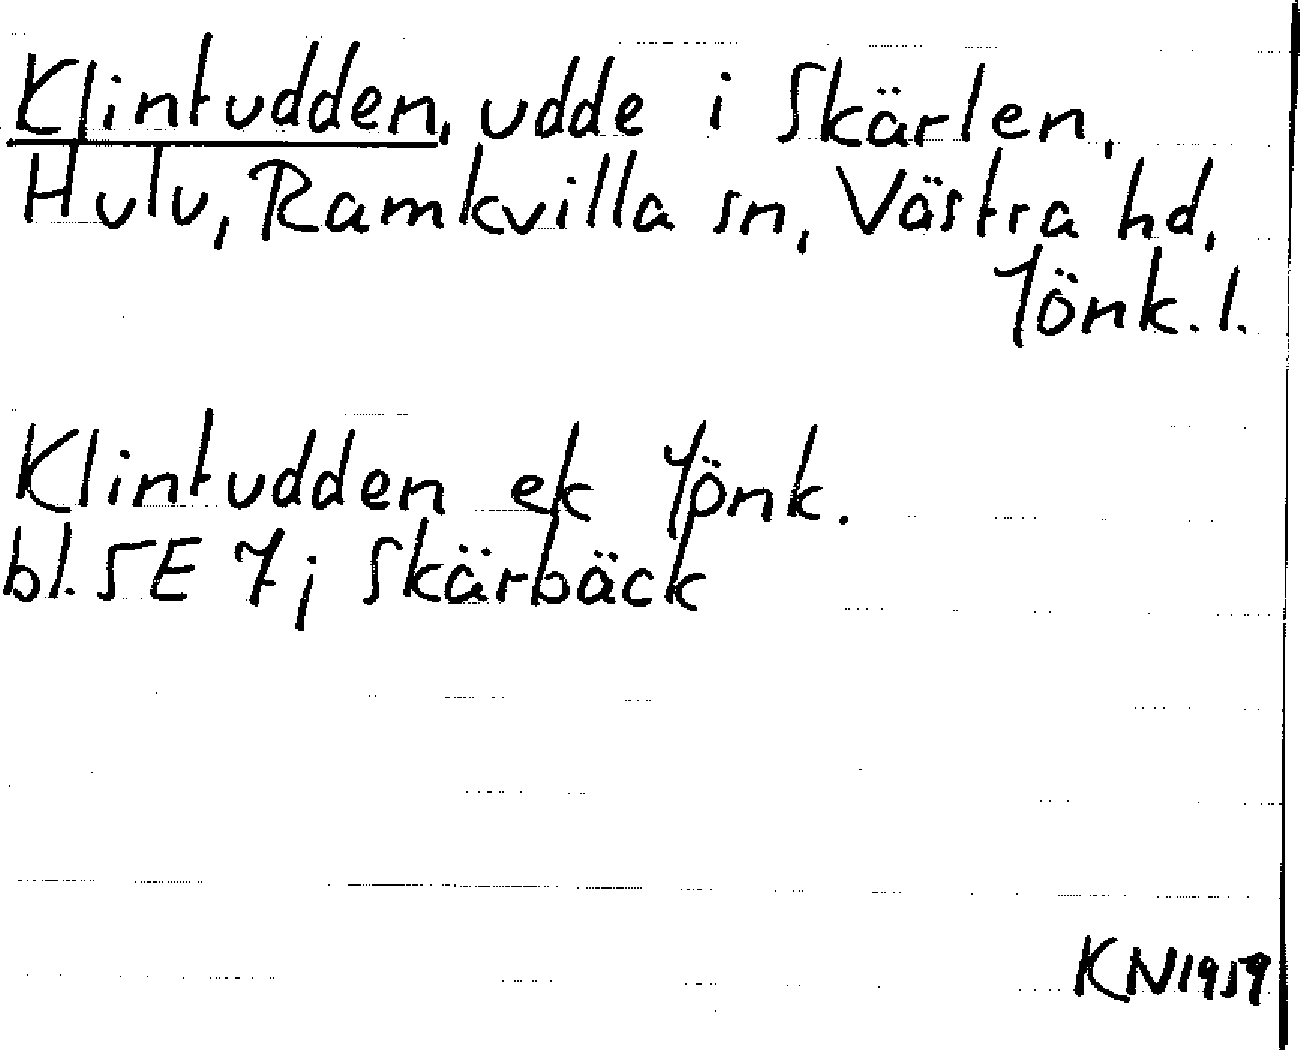 Klintudden, udde i Skärlen,
Hulu, Ramkvilla sn, Västra hd,
Jönk. l.
Klintudden ek Jönk.
bl. 5E 7; Skärbäck
KN1959